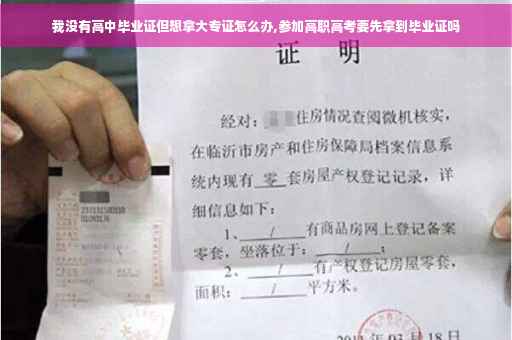 我没有高中毕业证但想拿大专证怎么办,参加高职高考要先拿到毕业证吗
证 明
经对: 住房情况查阅微机核实,
在临沂市房产和住房保障局档案信息系
统内现有 零 套房屋产权登记记录,详
细信息如下:
1、 / 有商品房网上登记备案
零套,坐落位于: / ;
2、 / 有产权登记房屋零套,
面积: / 平方米。
03月18日